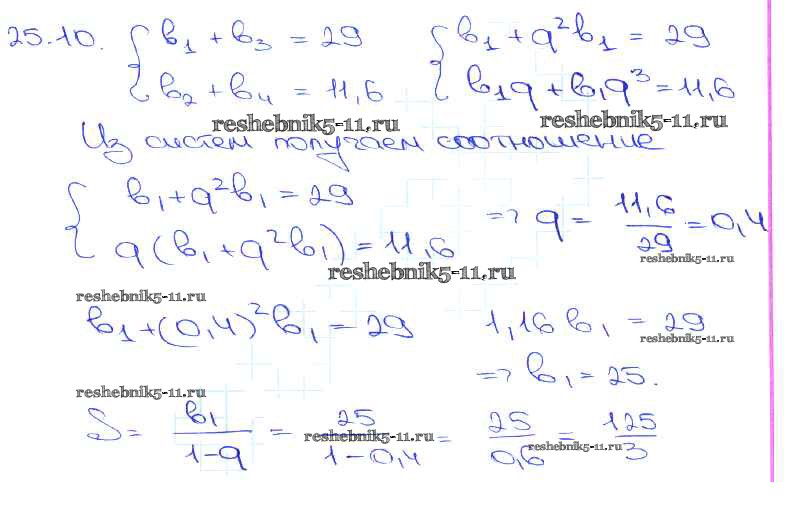 25.10. { b₁ + b₃ = 29 { b₁ + q²b₁ = 29
b₂ + b₄ = 11,6 b₁q + b₁q³ = 11,6
reshebnik5-11.ru reshebnik5-11.ru
Из систем получаем соотношение
{ b₁ + q²b₁ = 29
q(b₁ + q²b₁) = 11,6 => q = 11,6/29 = 0,4
reshebnik5-11.ru reshebnik5-11.ru
reshebnik5-11.ru
b₁ + (0,4)²b₁ = 29 1,16 b₁ = 29
reshebnik5-11.ru
=> b₁ = 25.
reshebnik5-11.ru
S = b₁/(1-q) = 25/(1-0,4) = 25/0,6 = 125/3
reshebnik5-11.ru reshebnik5-11.ru